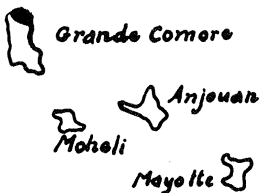 Grande Comore
Anjouan
Moheli
Mayotte